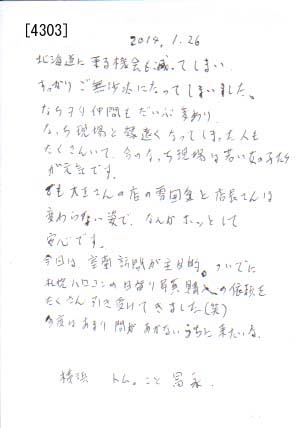 [4303]
2014.1.26
北海道に来る機会も減ってしまい、
すっかりご無沙汰になってしまいました。
なちヲタ仲間もだいぶ変わり、
なっち現場と縁遠くなってしまった人も
たくさんいて、今のなっち現場は若い女の子たち
が元気です。
でも大王さんの店の雰囲気と店長さんは
変わらない姿で、なんかホッとして
安心です。
今回は、室蘭訪問が主目的。ついでに
札幌ハロコンの日替り写真購入の依頼を
たくさん引き受けてきました(笑)
今度はあまり間があかないうちに来たいな。
横浜 トム。こと 冨永.